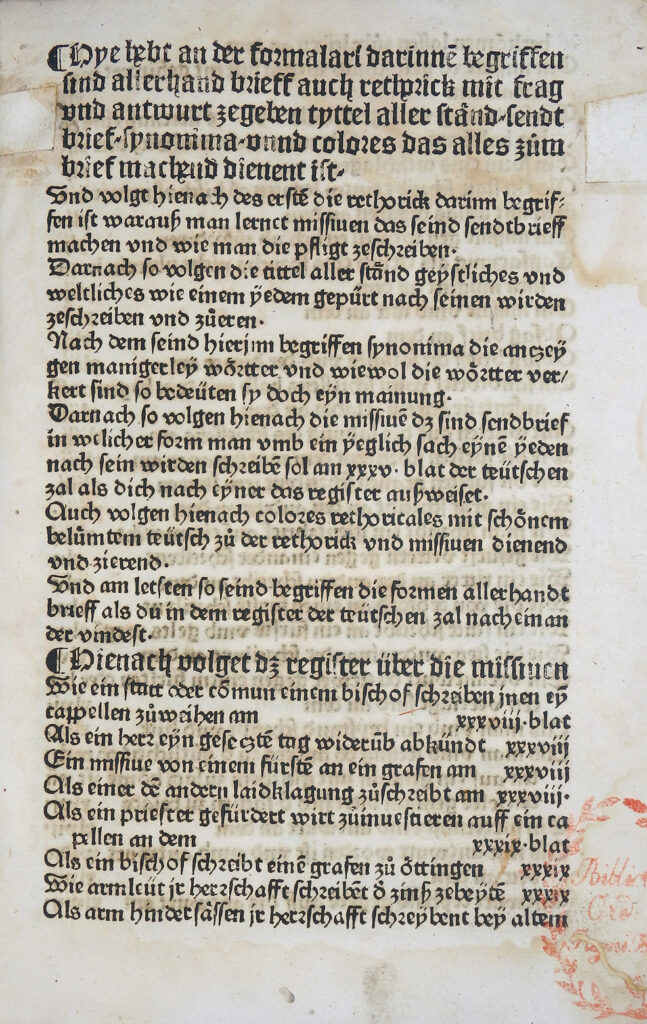 ¶Hye hebt an der formalari darinnē begriffen
sind allerhand brieff auch rethorick mit frag
vnd antwurt zegeben tyttel aller stånd-sendt
brief-synonima-vnnd colores das alles zům
brief machend dienent ist·
Vnd volgt hienach des erstē die rethorick darinn begrif⸗
fen ist warauß man lernet missiuen das seind sendtbrieff
machen vnd wie man die pfligt zeschreiben·
Darnach so volgen die tittel aller stånd geystliches vnd
weltliches wie einem ÿedem gepürt nach seinen wirden
zeschreiben vnd zůeren·
Nach dem seind hierjnn begriffen synonima die anczeÿ
gen manigerleÿ wôrtter vnd wiewol die wôrtter ver/
kert sind so bedeüten sy doch eyn mainung·
Darnach so volgen hienach die missiuē dz sind sendbrief
in welicher form man vmb ein ÿeglich sach eÿnē ÿeden
nach sein wirden schreibē sol am xxxv· blat der teütschen
zal als dich nach eÿner das register außweiset·
Auch volgen hienach colores rethoricales mit schônem
belůmtem teütsch zů der rethorick vnd missiuen dienend
vnd zierend·
Vnd am letsten so seind begriffen die formen allerhandt
brieff als dü in dem register der teütschen zal nach einan
der vindest·
¶Hienach volget dz register über die missiuen
Wie ein statt oder cōmun einem bischof schreiben jnen eÿ
cappellen zůweihen am xxxviij·blat
Als ein herr eÿn gesecztē tag widerūb abkündt xxxviij
Ein missiue von einem fürstē an ein grafen am xxxviij
Als einer dē andern laidklagung zůschreibt am xxxviij·
Als ein priester gefürdert wirt zůinuestieren auff ein ca
pellen an dem xxxix·blat
Als ein bischof schreibt einē grafen zů ôttingen xxxix
Wie armleüt jr herrschafft schreibēt ō zinß zebeÿtē xxxix
Als arm hindersåssen jr herrschafft schreÿbent beÿ altem
Ord